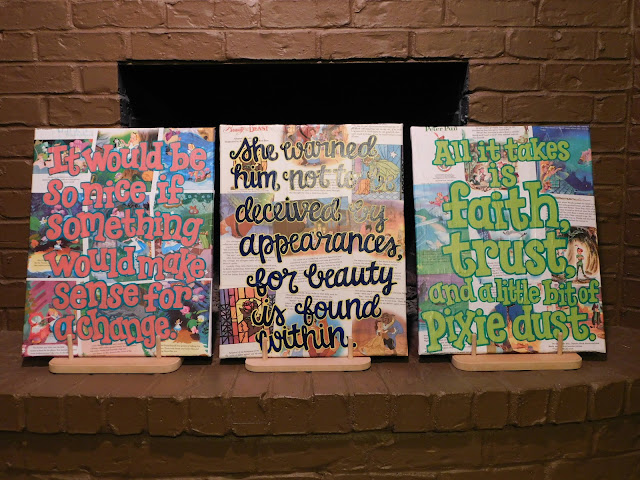 It would be
so nice if
something
would make
sense for
a change.
Beauty
BEAST
She warned
him not to
deceived by
appearances,
for beauty
is found
within.
Peter Pan
All it takes
is
faith,
trust,
and a little bit of
pixie dust.